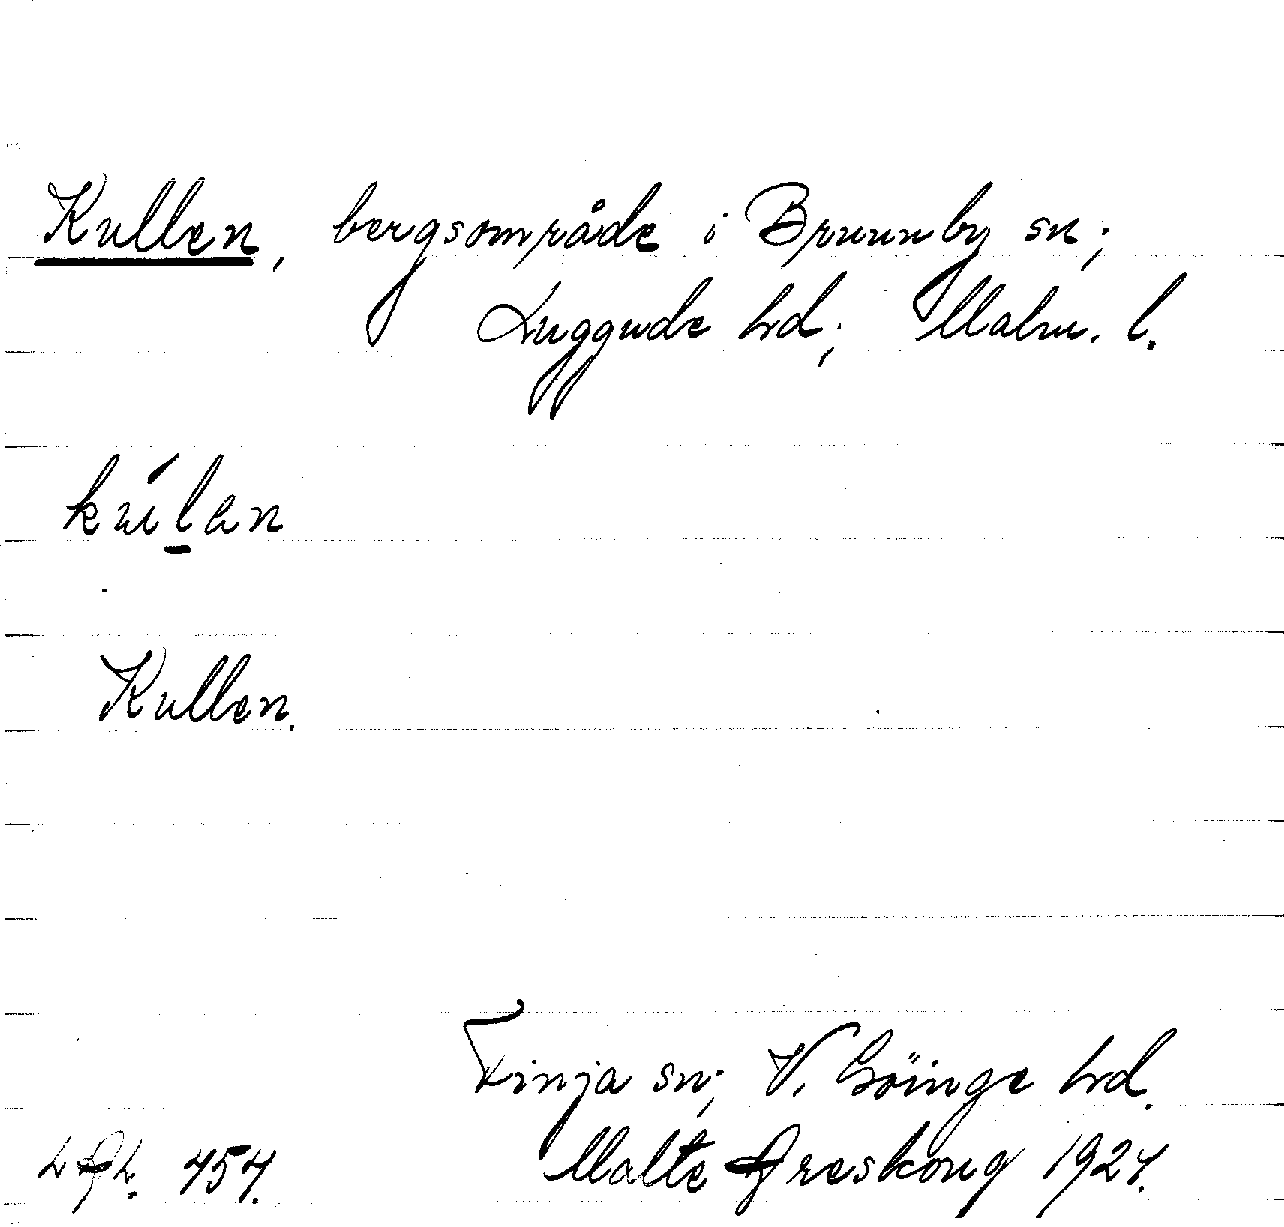 Kullen, bergsområde i Brunnby sn;
Luggude hd; Malm. l.
kúlan
Kullen.
Finja sn; V. Göinge hd.
454. Malte Areskoug 1924.